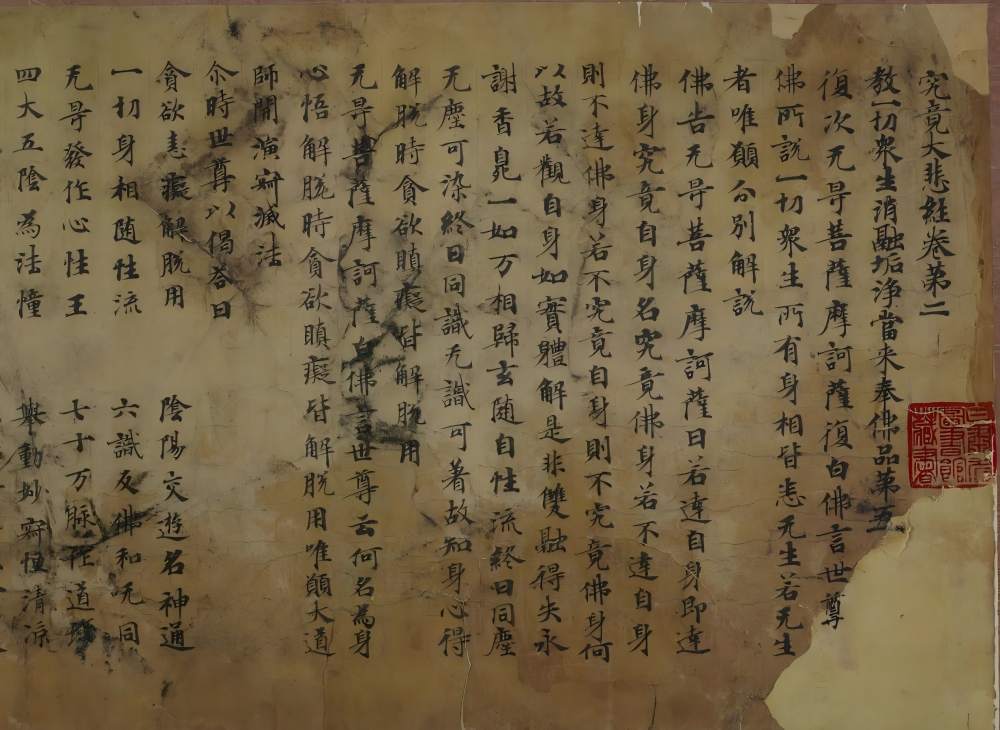 究竟大悲經卷第二
教一切眾生消融垢淨當來奉佛品第五
復次无㝵菩薩摩訶薩復白佛言世尊
佛所說一切眾生所有身相皆悉无生若无生
者唯願分別解說
佛告无㝵菩薩摩訶薩曰若達自身即達
佛身究竟自身名究竟佛身若不達自身
則不達佛身若不究竟自身則不究竟佛身何
以故若觀自身如實體解是非雙融得失永
謝香臰一如万相歸玄随自性流終日同塵
无塵可染終日同識无識可著故知身心得
解脫時貪欲瞋癡皆解脫用
无㝵菩薩摩訶薩白佛言世尊云何名為身
心悟解脫時貪欲瞋癡皆解脫用唯願大道
師開演寂滅法
尒時世尊以偈答曰
貪欲恚癡解脫用 陰陽交遊名神通
一切身相随性流 六識反佛和唍同
无㝵發作心性王 七十万脉作道
四大五陰為法憧 舉動妙寂恒清涼